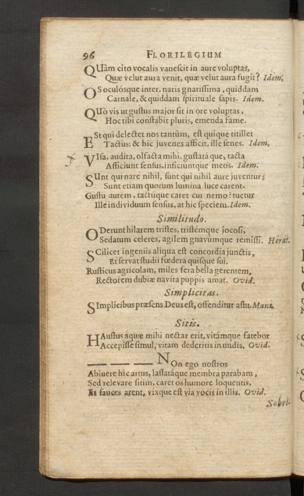 96 FLORILEGIUM
QUàm cito vocalis vanescit in aure voluptas,
Quæ velut aura venit, quæ velut aura fugit? Idem.
OS oculósque inter, naris gnarissima, quiddam
Carnale, & quiddam spirituale sapis. Idem.
QUò vis ut gustus major sit in ore voluptas,
Hoc tibi constabit pluris, emenda fame.
ESt qui delectet nos tantùm, est quique titillet
Tactus: & hic juvenes afficit, ille senes. Idem.
VIsa, audita, olfacta mihi, gustatá que, tacta
Afficiunt sensus, inficiuntque meos. Idem.
SUnt qui nare nihil, sunt qui nihil aure juventur;
Sunt etiam quorum lumina luce carent.
Gustu autem, tactúque caret cur nemo? tuetur
Ille individuum sensus, at hic speciem. Idem.
Similitudo.
ODerunt hilarem tristes, tristémque jocosi,
Sedatum celeres, agilem gnavumque remissi. Horat.
SCilicet ingeniis aliqua est concordia junctis,
Et servat studii fœdera quisque sui,
Rusticus agricolam, miles fera bella gerentem,
Rectorem dubiæ navita puppis amat. Ovid.
Simplicitas.
SImplicibus præsens Deus est, offenditur astu. Mant.
Sitis.
HAustus aquæ mihi nectar erit, vitámque fatebor
Accepisse simul, vitam dederitis in undis. Ovid.
NOn ego nostros
Abluere hic artus, lassatáque membra parabam,
Sed relevare sitim, caret os humore loquentis.
Et fauces arent, vixque est via vocis in illis. Ovid.